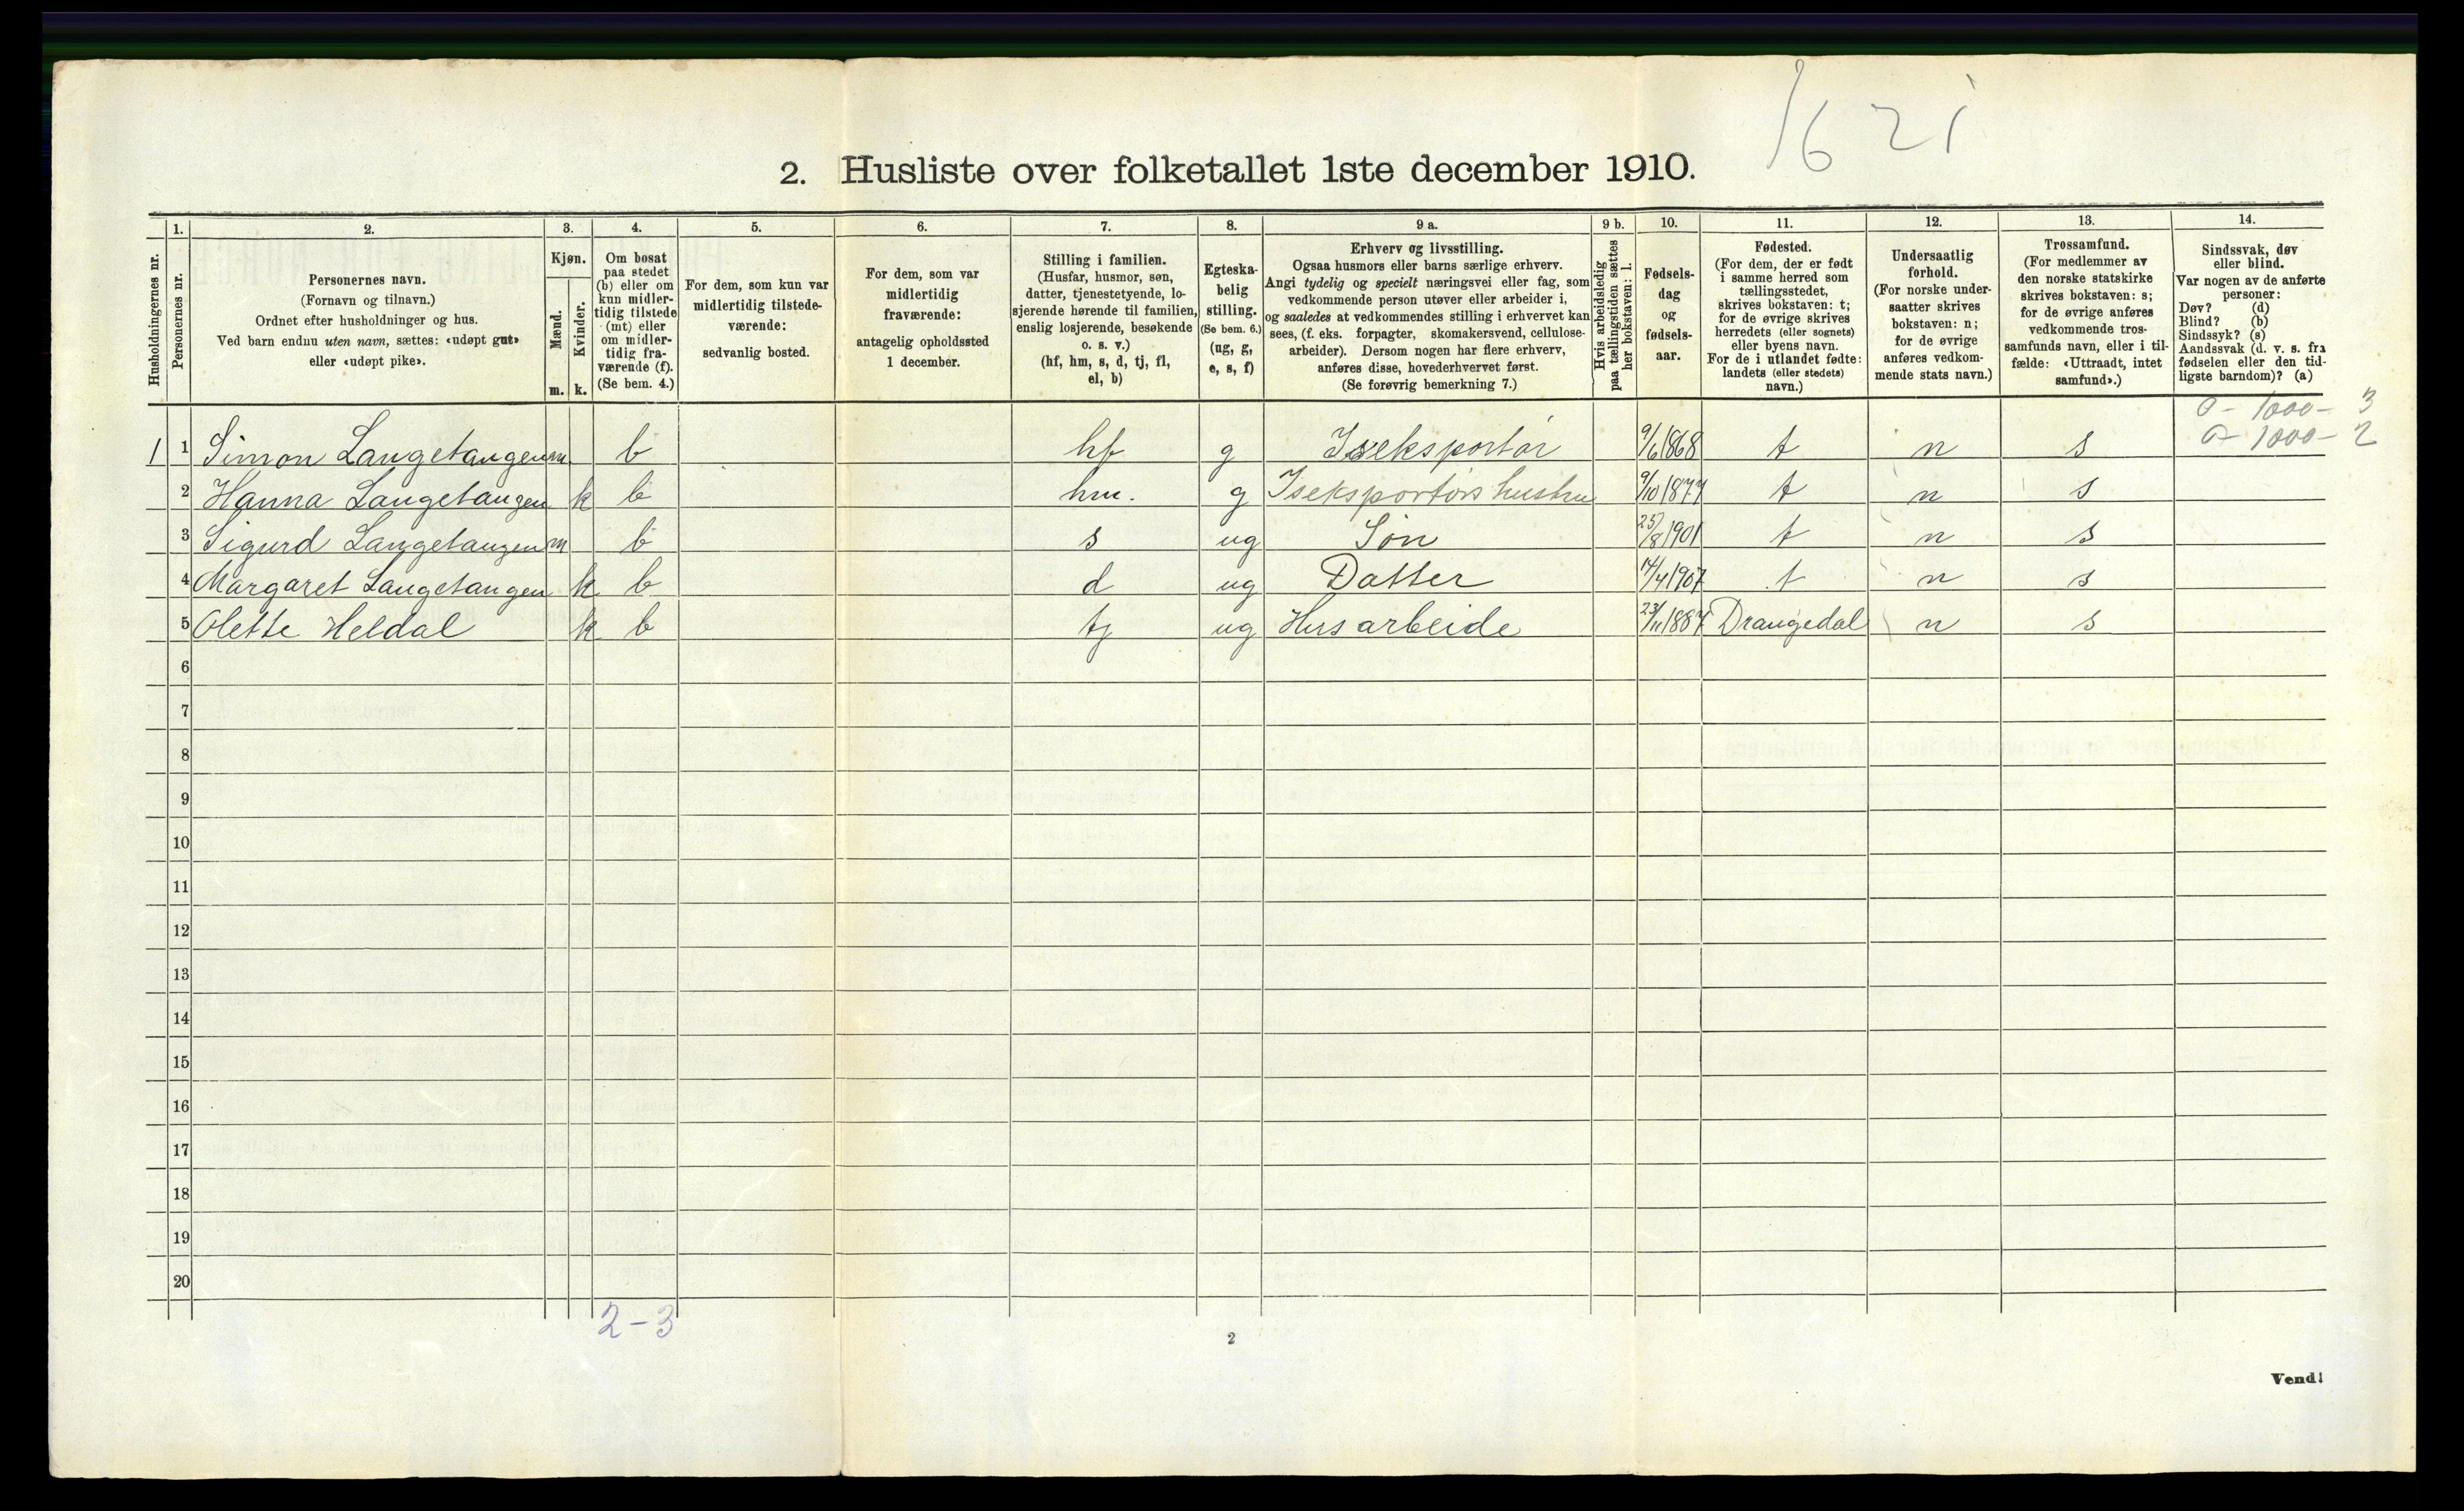 1621
2. Husliste over folketallet 1ste december 1910.
Husholdningernes nr.
1.
Personernes nr.
2.
Personernes navn.
(Fornavn og tilnavn.)
Ordnet efter husholdninger og hus.
Ved barn endnu uten navn, sættes: «udøpt gut»
eller «udøpt pike».
3.
Kjøn.
Mænd.
Kvinder.
m. k.
4.
Om bosat
paa stedet
(b) eller om
kun midler-
tidig tilstede
(mt) eller
om midler-
tidig fra-
værende (f).
(Se bem. 4.)
5.
For dem, som kun var
midlertidig tilstede-
værende:
sedvanlig bosted.
6.
For dem, som var
midlertidig
fraværende:
antagelig opholdssted
1 december.
7.
Stilling i familien.
(Husfar, husmor, søn,
datter, tjenestetyende, lo-
sjerende hørende til familien,
enslig losjerende, besøkende
o. s. v.)
(hf, hm, s, d, tj, fl,
el, b)
8.
Egteska-
belig
stilling.
(Se bem. 6.)
(ug, g,
e, s, f)
9 a.
Erhverv og livsstilling.
Ogsaa husmors eller barns særlige erhverv.
Angi tydelig og specielt næringsvei eller fag, som
vedkommende person utøver eller arbeider i,
og saaledes at vedkommendes stilling i erhvervet kan
sees, (f. eks. forpagter, skomakersvend, cellulose-
arbeider). Dersom nogen har flere erhverv,
anføres disse, hovederhvervet først.
(Se forøvrig bemerkning 7.)
9 b.
Hvis arbeidsledig
paa tællingstiden sættes
her bokstaven: l.
10.
Fødsels-
dag
og
fødsels-
aar.
11.
Fødested.
(For dem, der er født
i samme herred som
tællingsstedet,
skrives bokstaven: t;
for de øvrige skrives
herredets (eller sognets)
eller byens navn.
For de i utlandet fødte:
landets (eller stedets)
navn.)
12.
Undersaatlig
forhold.
(For norske under-
saatter skrives
bokstaven: n;
for de øvrige
anføres vedkom-
mende stats navn.)
13.
Trossamfund.
(For medlemmer av
den norske statskirke
skrives bokstaven: s;
for de øvrige anføres
vedkommende tros-
samfunds navn, eller i til-
fælde: «Uttraadt, intet
samfund».)
14.
Sindssvak, døv
eller blind.
Var nogen av de anførte
personer:
Døv? (d)
Blind? (b)
Sindssyk? (s)
Aandssvak (d. v. s. fra
fødselen eller den tid-
ligste barndom)? (a)
0 - 1000 - 3
0 - 1000 - 2
1 1 Simon Langetangen m. b hf g Iseksportør 9/6 1868 t n s
2 Hanna Langetangen k b hm. g Iseksportørs hustru 9/10 1877 t n s
3 Sigurd Langetangen m b s ug Søn 25/8 1901 t n s
4 Margaret Langetangen k b d ug Datter 14/4 1907 t n s
5 Olette Heldal k b tj ug Husarbeide 23/11 1887 Drangedal n s
6
7
8
9
10
11
12
13
14
15
16
17
18
19
20
2-3
2
Vend!